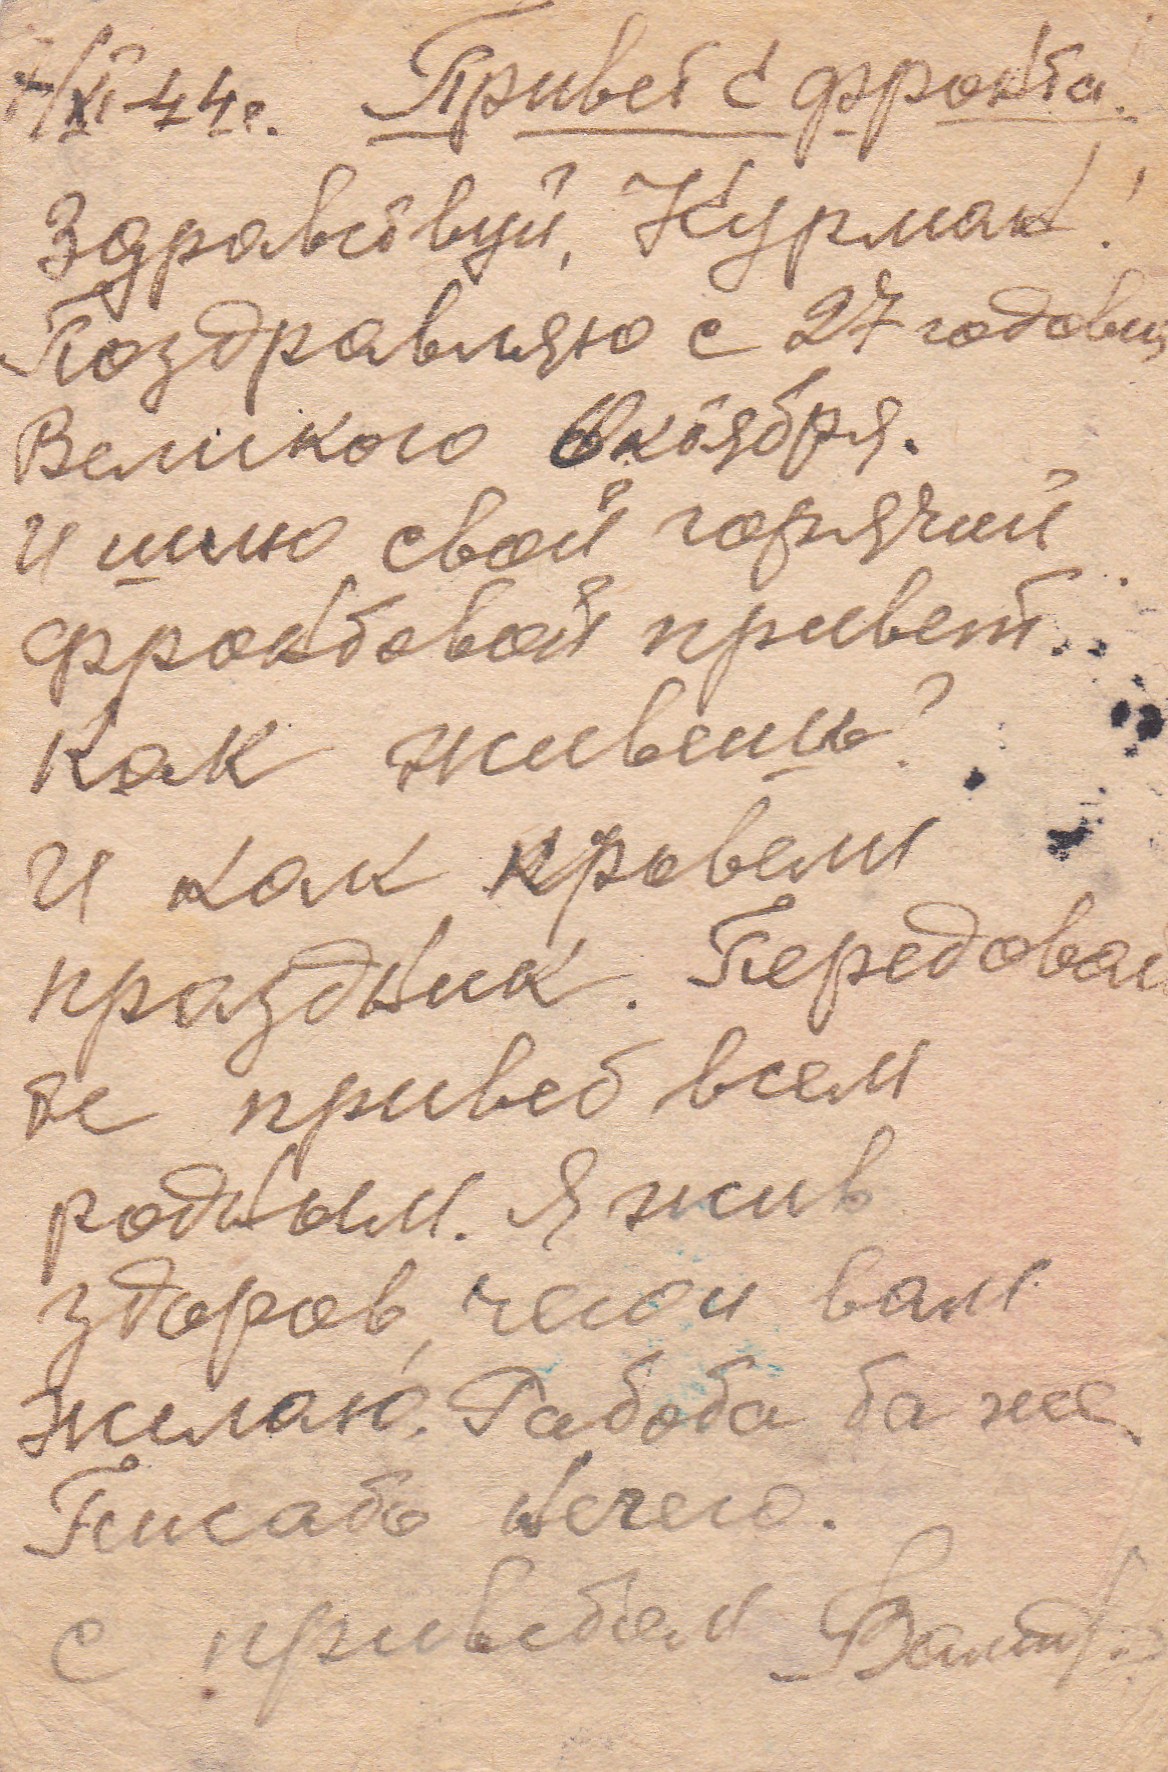 7/XI-44г. Привет с фронта!
Здравствуй, Курмак!
Поздравляю с 27 годовщ
Великого Октября.
И шлю свой горячий
фронтовой привет.
Как живешь?
И как провели
праздник. Передовай
те привет всем
родным. Я жив
здоров, чегои вам
желаю. Работа та же.
Писать нечего.
с приветом